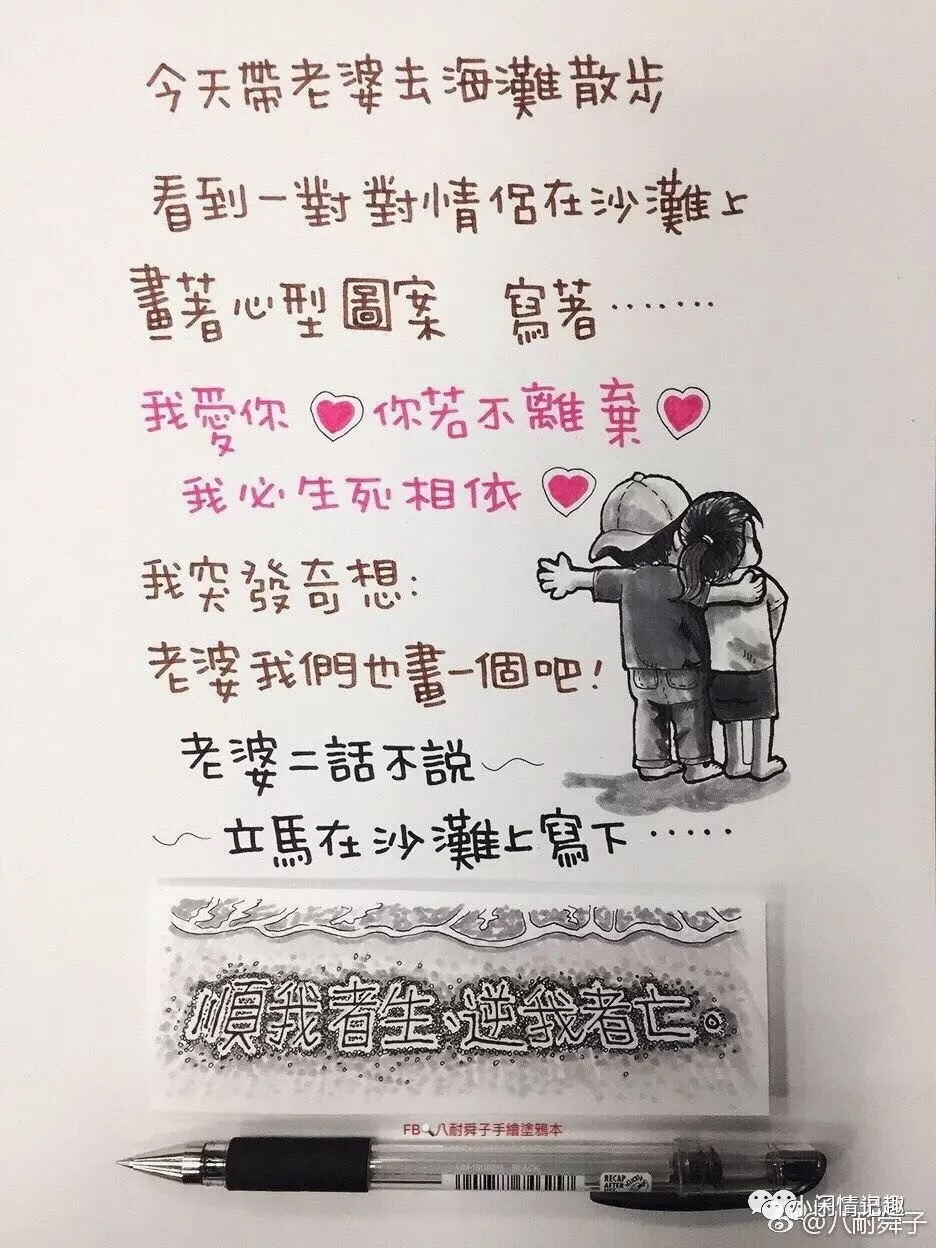 今天帶老婆去海灘散步
看到一對對情侶在沙灘上
畫著心型圖案 寫著·······
我愛你 你若不離棄
我必生死相依
我突發奇想:
老婆我們也畫一個吧!
老婆二話不說
立馬在沙灘上寫下·····
順我者生、逆我者亡。
FB 八耐舜子手繪塗鴉本
BLACK
RECAP AFTER
小闲情记趣
@八耐舜子